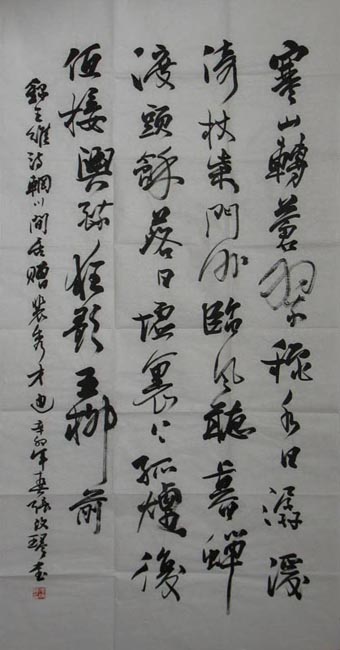 寒山轉蒼翠秋水日潺湲
倚杖柴門外臨風聽暮蟬
渡頭餘落日墟裏上孤煙復
值接輿醉狂歌五柳前
錄王維詩輞川閒居贈裴秀才迪辛卯年春張改琴書